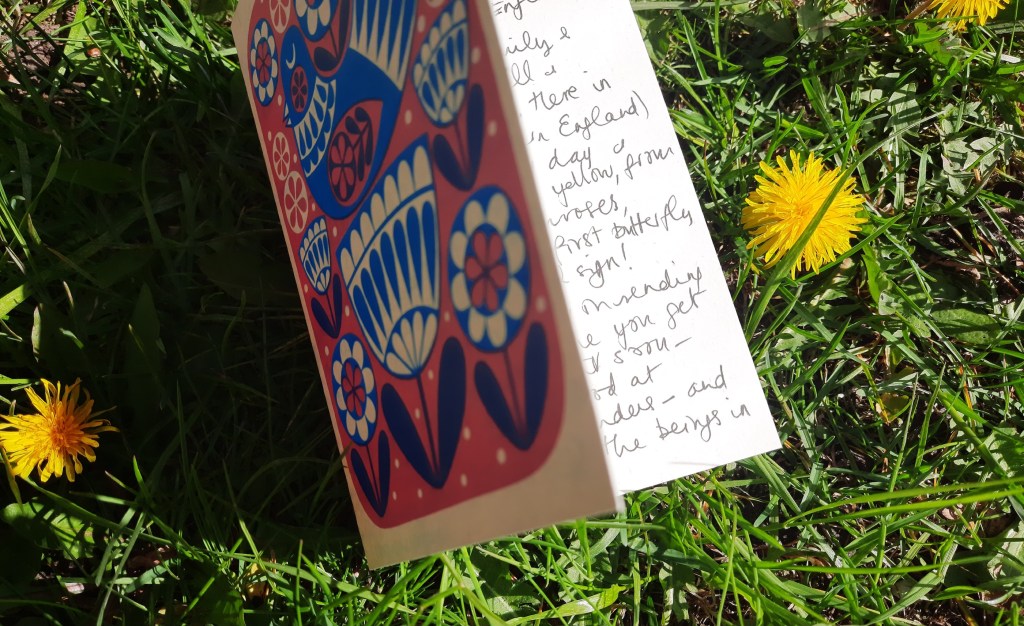 Engl
ily &
ll a
there in
in England)
day &
yellow, from
roses,
first butterfly
sign!
sending
e you get
soon –
d at
ders – and
the beings in